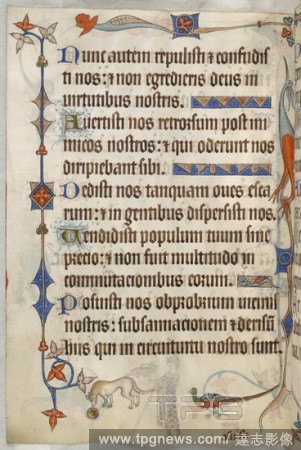 Nunc autem repulisti ⁊ confudis
ti nos: ⁊ non egredieris deus in
uirtutibus nostris.
Auertisti nos retrorsum post ini
micos nostros: ⁊ qui oderunt nos
diripiebant sibi.
Dedisti nos tanquam oues esca
rum: ⁊ in gentibus dispersisti nos.
Uendidisti populum tuum sine
precio: ⁊ non fuit multitudo in
commutacionibus eorum.
Posuisti nos obprobrium uicinis
nostris: subsannacionem ⁊ derisū
hiis qui in circuitu nostro sunt.
TPG
www.tpgnews.com/達志影像